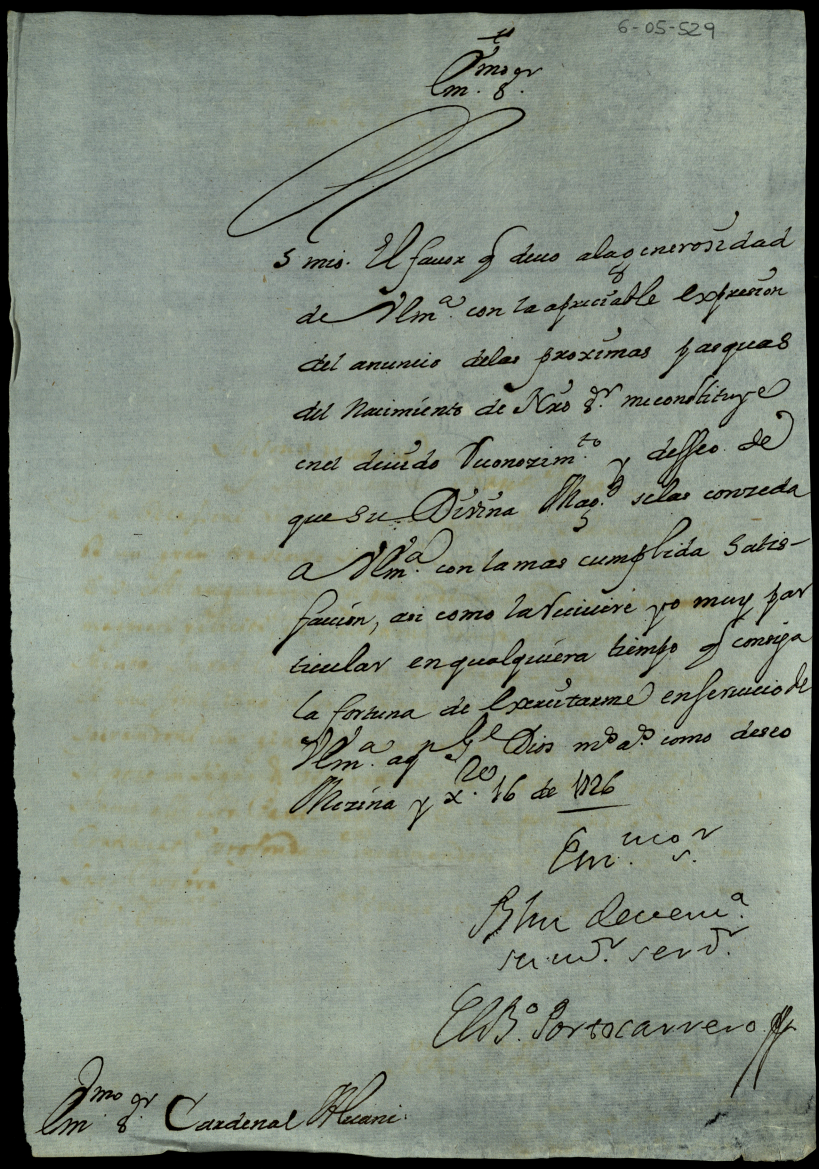 6-05-529
Em.mo Sr.
S mio. El favor q devo ala generosidad
de V Em.a con la apreciable expresion
del anuncio delas proximas pasquas
del Nacimiento de Nro Sr. me constituye
enel devido reconozim.to y desseo de
que su Divina Mag.d selas conzeda
a V Em.a con la mas cumplida satis-
facion, asi como la reciviré yo muy par
ticular en qualquiera tiempo q consiga
la fortuna de exercitarme en servicio de
V Em.a a q.n g.e Dios m.s a.s como deseo
Mezina y x.re 16 de 1726
Em.mo Sr.
Blm de v em.a
su m.r serv.r
El B.o Portocarrero
Em.mo Sr. Cardenal Alvani